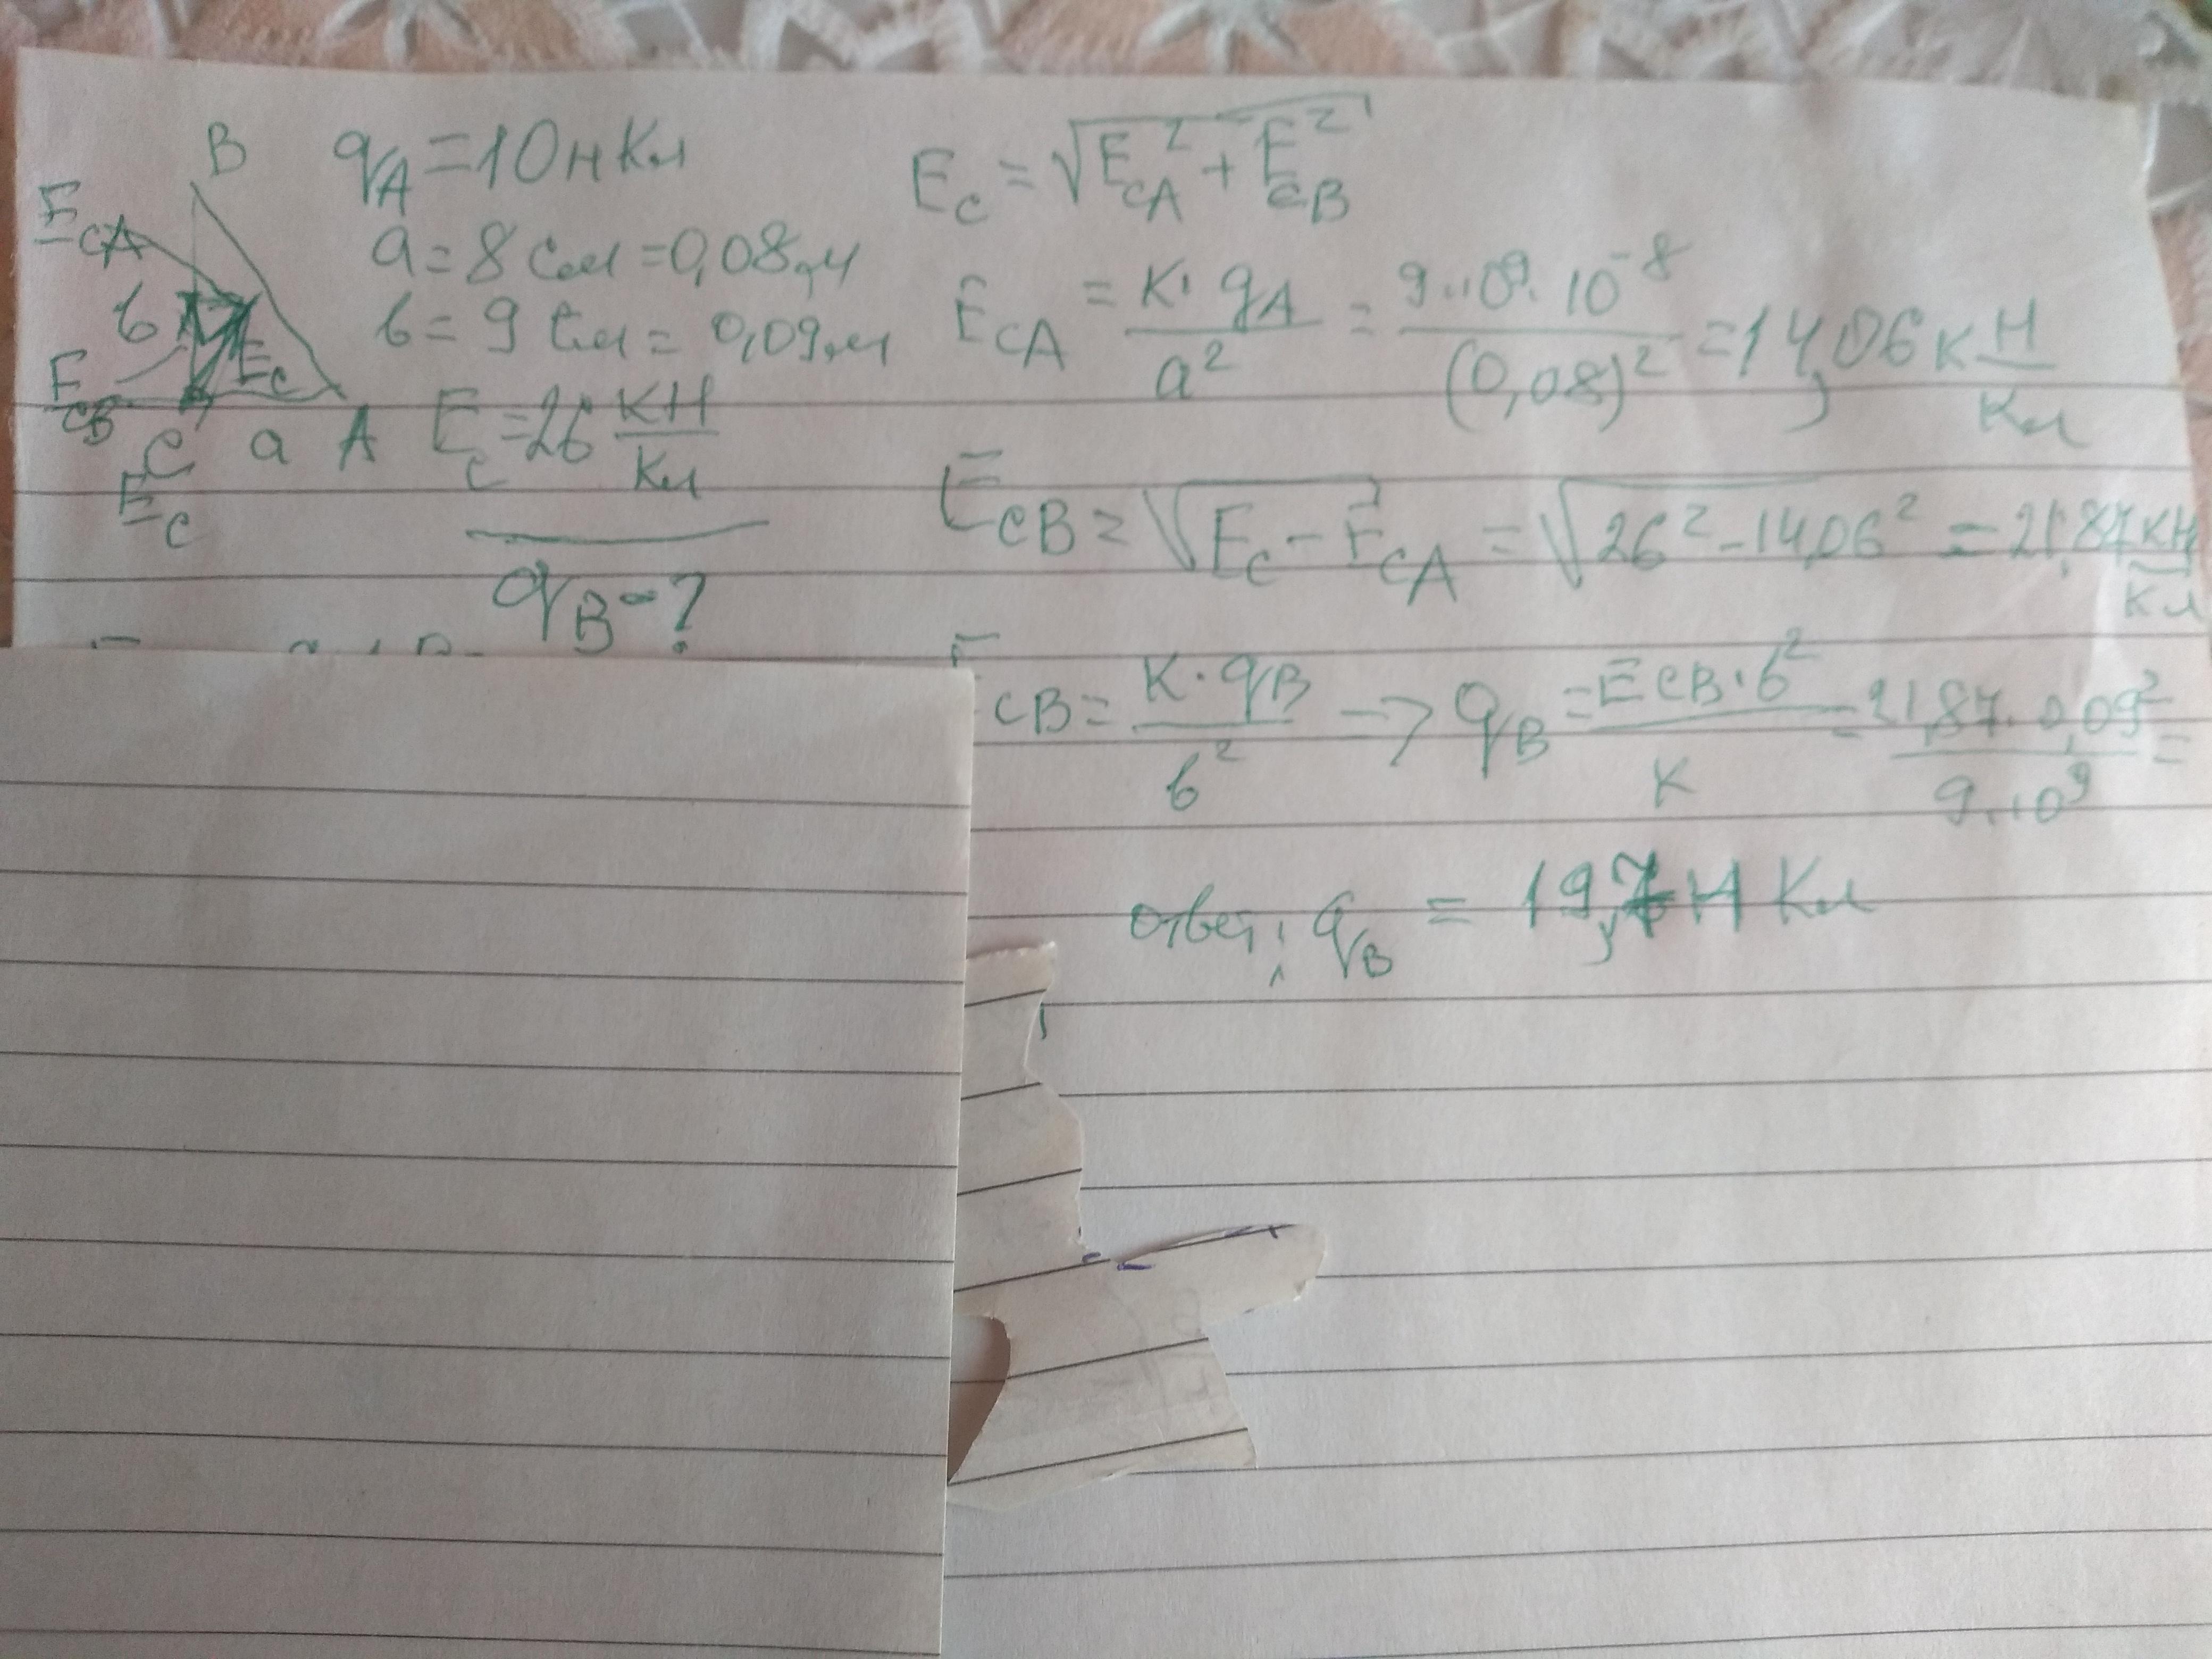 B
E_CA
b
E_CB
E_C
C a A
E_C
q_A = 10 нКл
a = 8 см = 0,08 м
b = 9 см = 0,09 м
E_C = 26 кН/Кл
q_B - ?
E_C = √(E_CA² + E_CB²)
E_CA = K · q_A / a² = 9·10⁹·10⁻⁸ / (0,08)² = 14,06 к Н/Кл
E_CB = √(E_C - E_CA) = √(26² - 14,06²) = 21,87 кН/Кл
E_CB = K · q_B / b² -> q_B = E_CB · b² / K = 21,87 · 0,09² / 9·10⁹ =
ответ: q_B = 19,7 н Кл